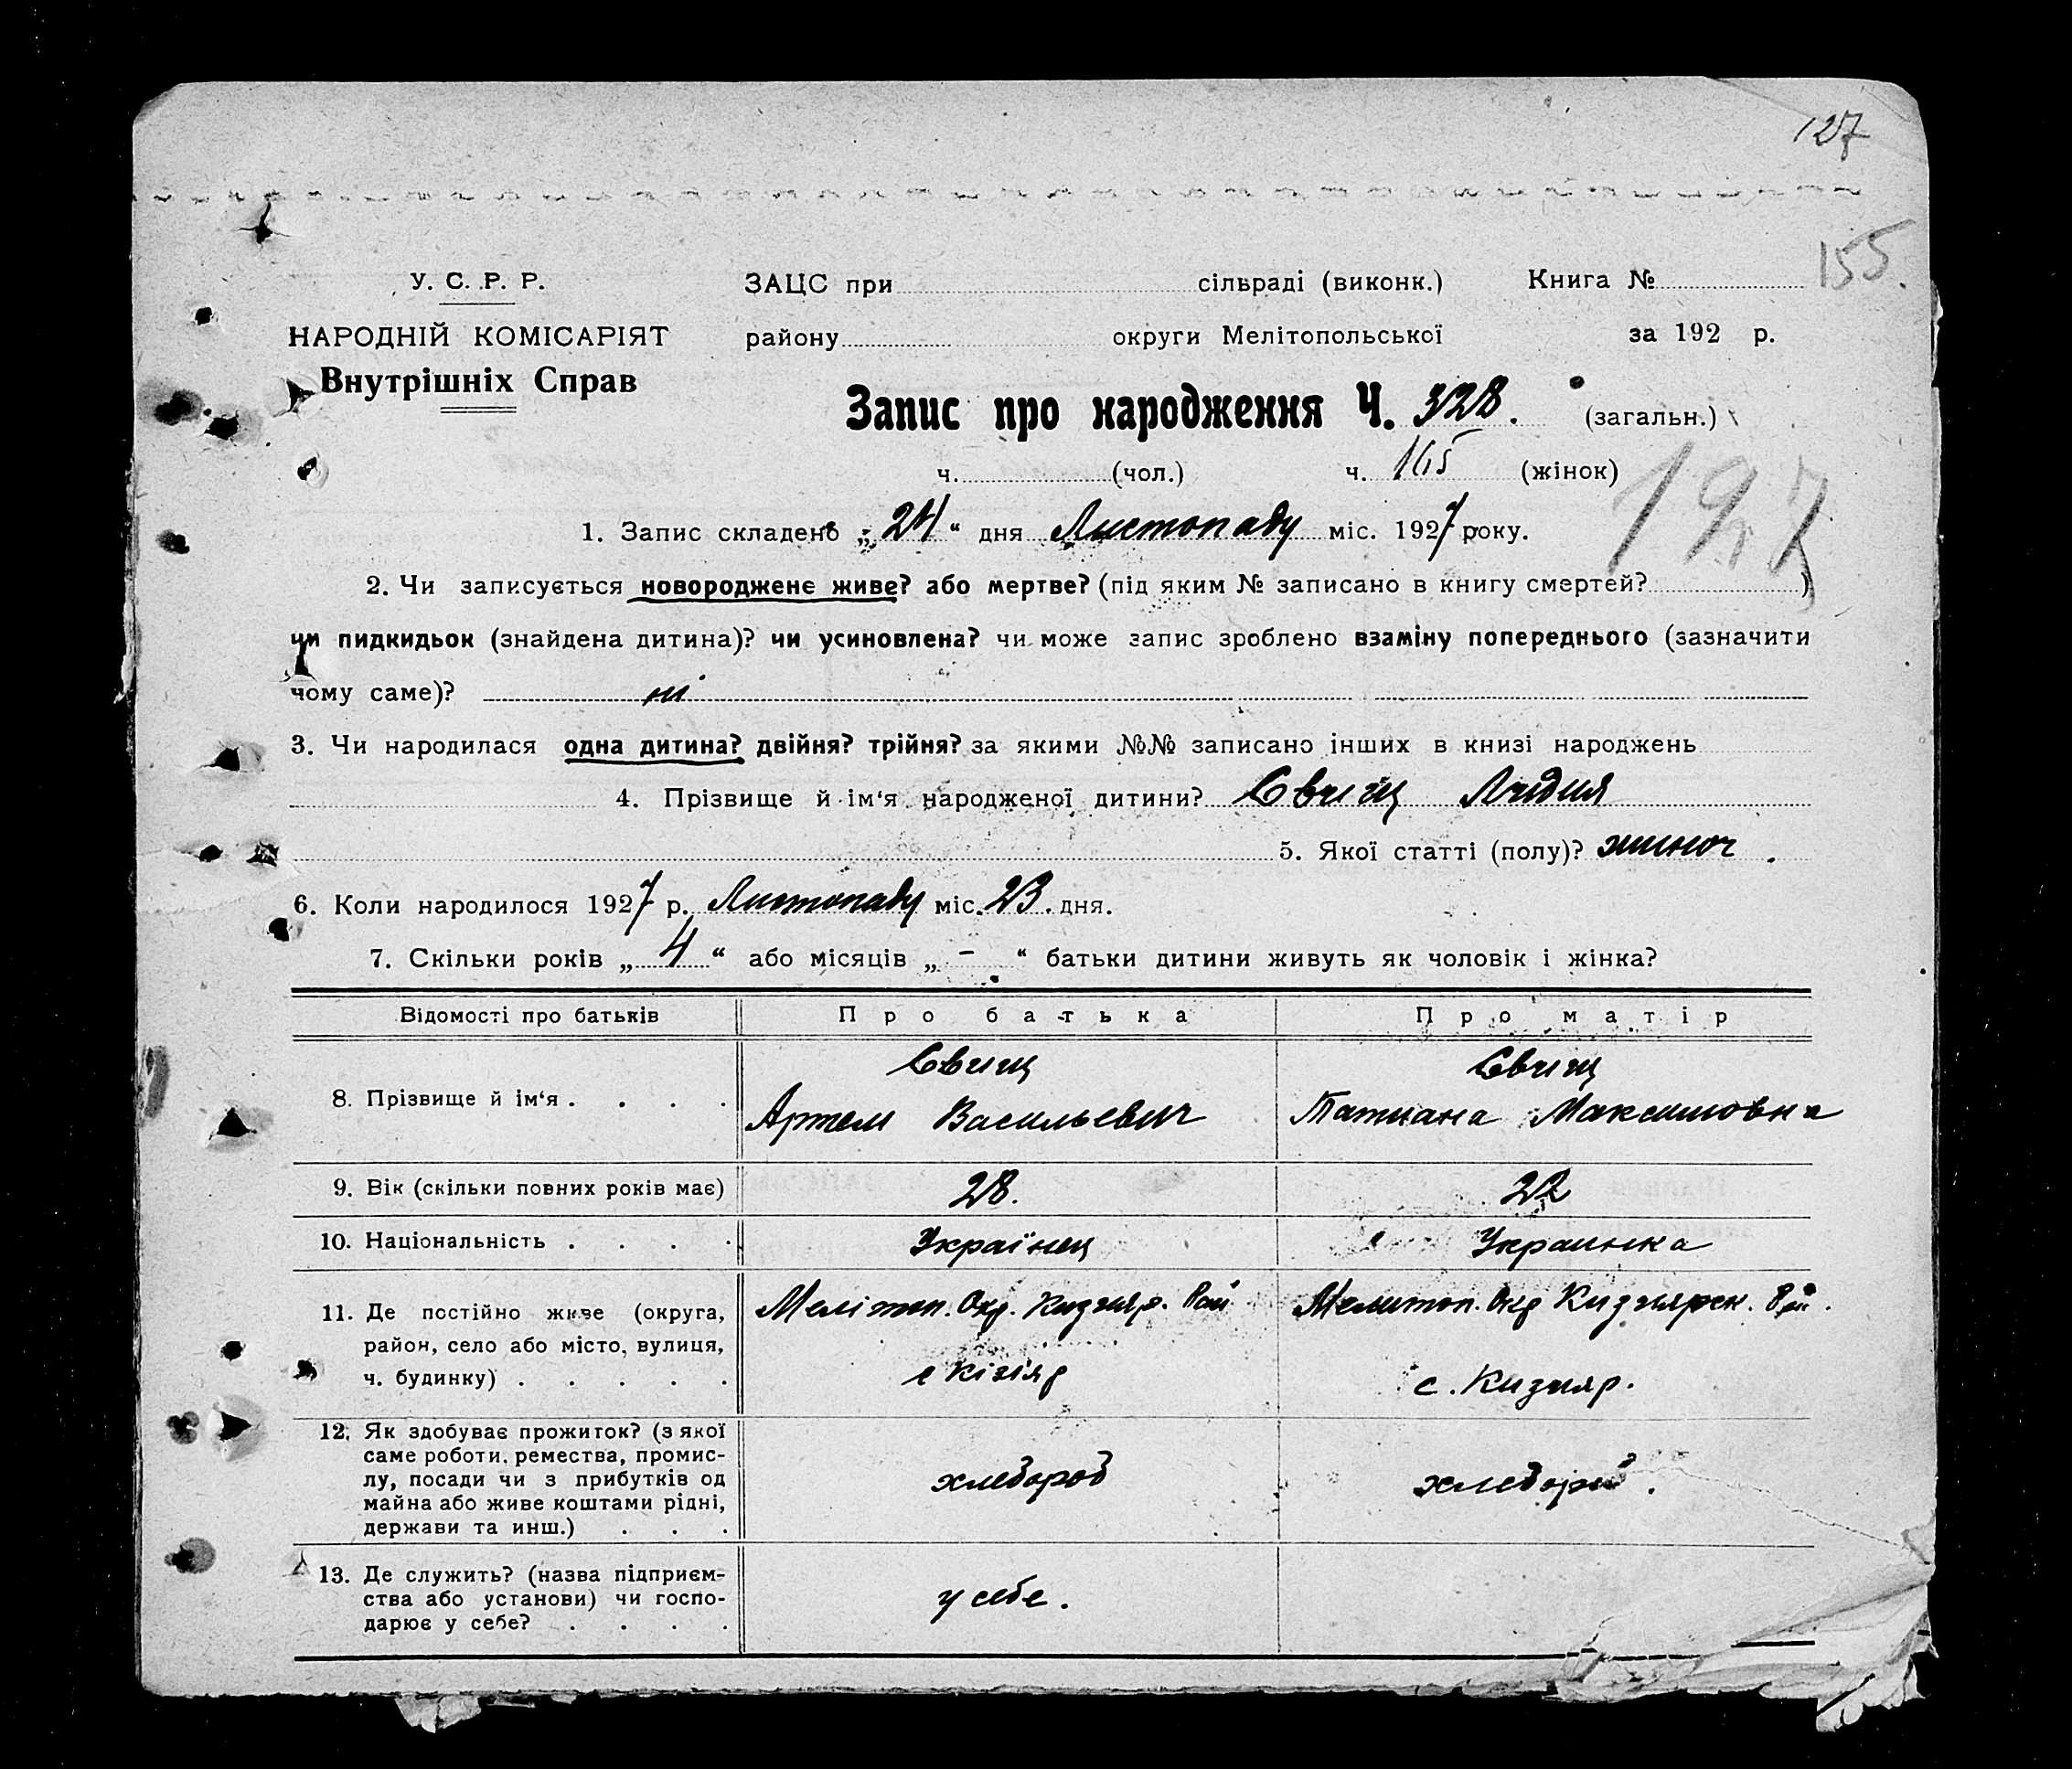 127
155.
У. С. Р. Р.
ЗАЦС при сільраді (виконк.) Книга №
НАРОДНІЙ КОМІСАРІЯТ
району округи Мелітопольської за 192 р.
Внутрішніх Справ
Запис про народження Ч. 328. (загальн.)
ч. (чол.) ч. 165 (жінок)
197
1. Запис складено „24“ дня Листопаду міс. 1927 року.
2. Чи записується новороджене живе? або мертве? (під яким № записано в книгу смертей? )
чи пидкидьок (знайдена дитина)? чи усиновлена? чи може запис зроблено взаміну попереднього (зазначити
чому саме)? ні
3. Чи народилася одна дитина? двійня? трійня? за якими №№ записано інших в книзі народжень
4. Прізвище й ім‘я народженої дитини? Свищ Лидия
5. Якої статті (полу)? жиноч.
6. Коли народилося 1927 р. Листопаду міс. 23. дня.
7. Скільки років „4“ або місяців „-“ батьки дитини живуть як чоловік і жінка?
Відомості про батьків Про батька Про матір
8. Прізвище й ім‘я
Свищ Свищ
Артем Васильевич Татиана Максимовна
9. Вік (скільки повних років має) 28. 22
10. Національність Українец Украинка
11. Де постійно живе (округа,
район, село або місто, вулиця,
ч. будинку)
Мелітоп. Окр. Кизияр. Рай Мелитоп. Окр Кизиярск. Рай.
с Кізіяр с. Кизияр.
12. Як здобуває прожиток? (з якої
саме роботи, ремества, промис-
лу, посади чи з прибутків од
майна або живе коштами рідні,
держави та инш.)
хлебороб хлебороб.
13. Де служить? (назва підприєм-
ства або установи) чи госпо-
дарює у себе?
у себе.